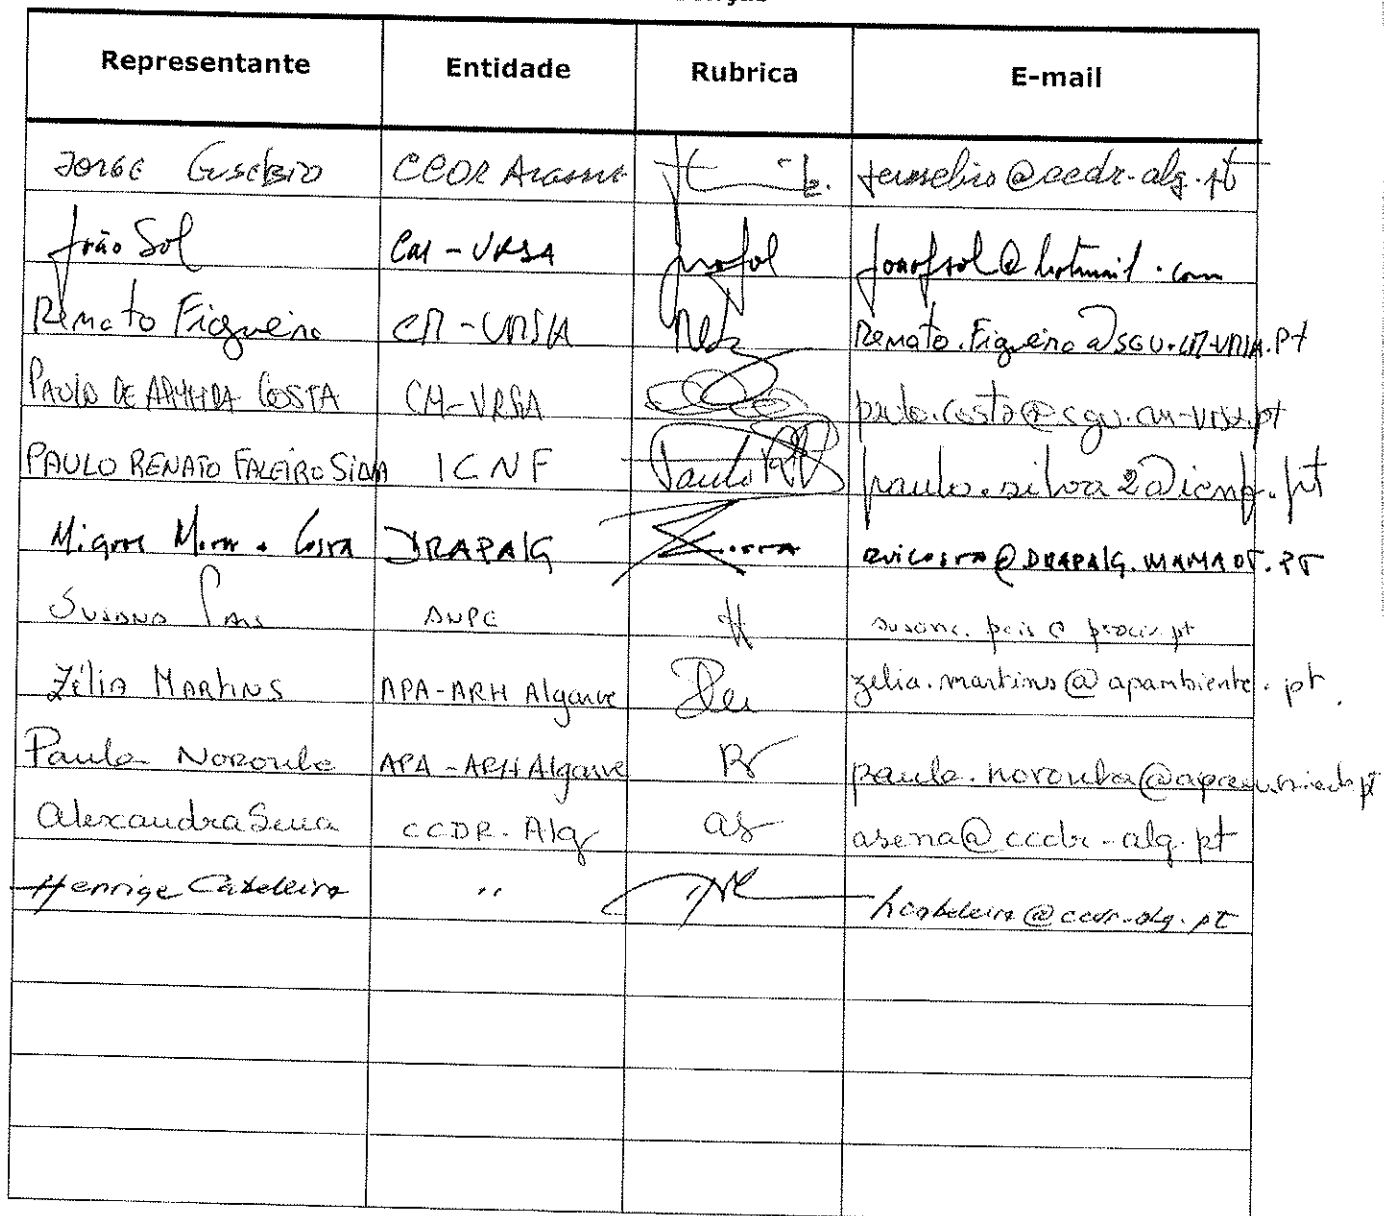 Representante Entidade Rubrica E-mail
JORGE EUSEBIO CCDR Algarve jeusebio@ccdr-alg.pt
João Sol CM-VRSA joaofsol@hotmail.com
Renato Figueira CM-VRSA Renato.Figueira@SGU.CM-VRSA.Pt
PAULO DE ALMEIDA COSTA CM-VRSA paulo.costa@sgu.cm-vrsa.pt
PAULO RENATO FALEIRO SILVA ICNF Paulo paulo.silva2@icnf.pt
Costa DRAPALG @DRAPALG.MAMAOT.PT
Susana Pais ANPC susana.pais@prociv.pt
Zélia Martins APA-ARH Algarve zelia.martins@apambiente.pt
Paula Noronha APA-ARH Algarve paula.noronha@apambiente.pt
Alexandra Sena CCDR-Alg as asena@ccdr-alg.pt
Henrique Cabeleira " hcabeleira@ccdr-alg.pt